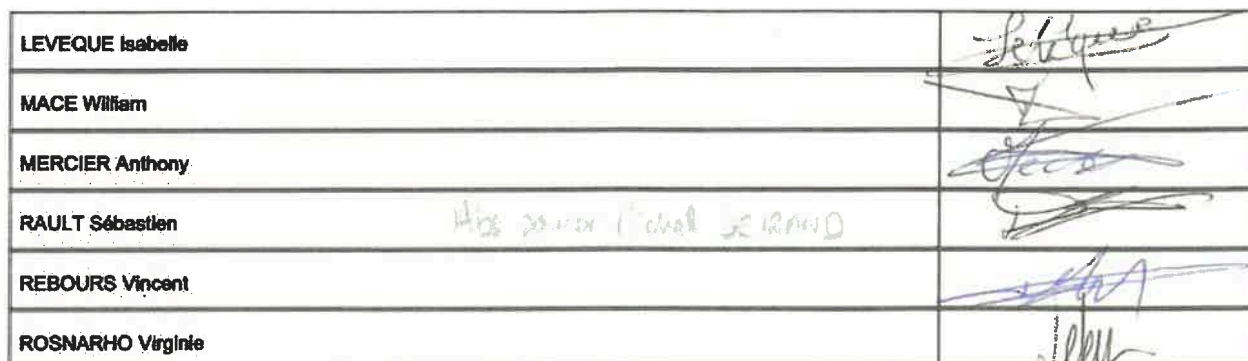 LEVEQUE Isabelle
Levêque
MACE William
MERCIER Anthony
RAULT Sébastien
REBOURS Vincent
ROSNARHO Virginie